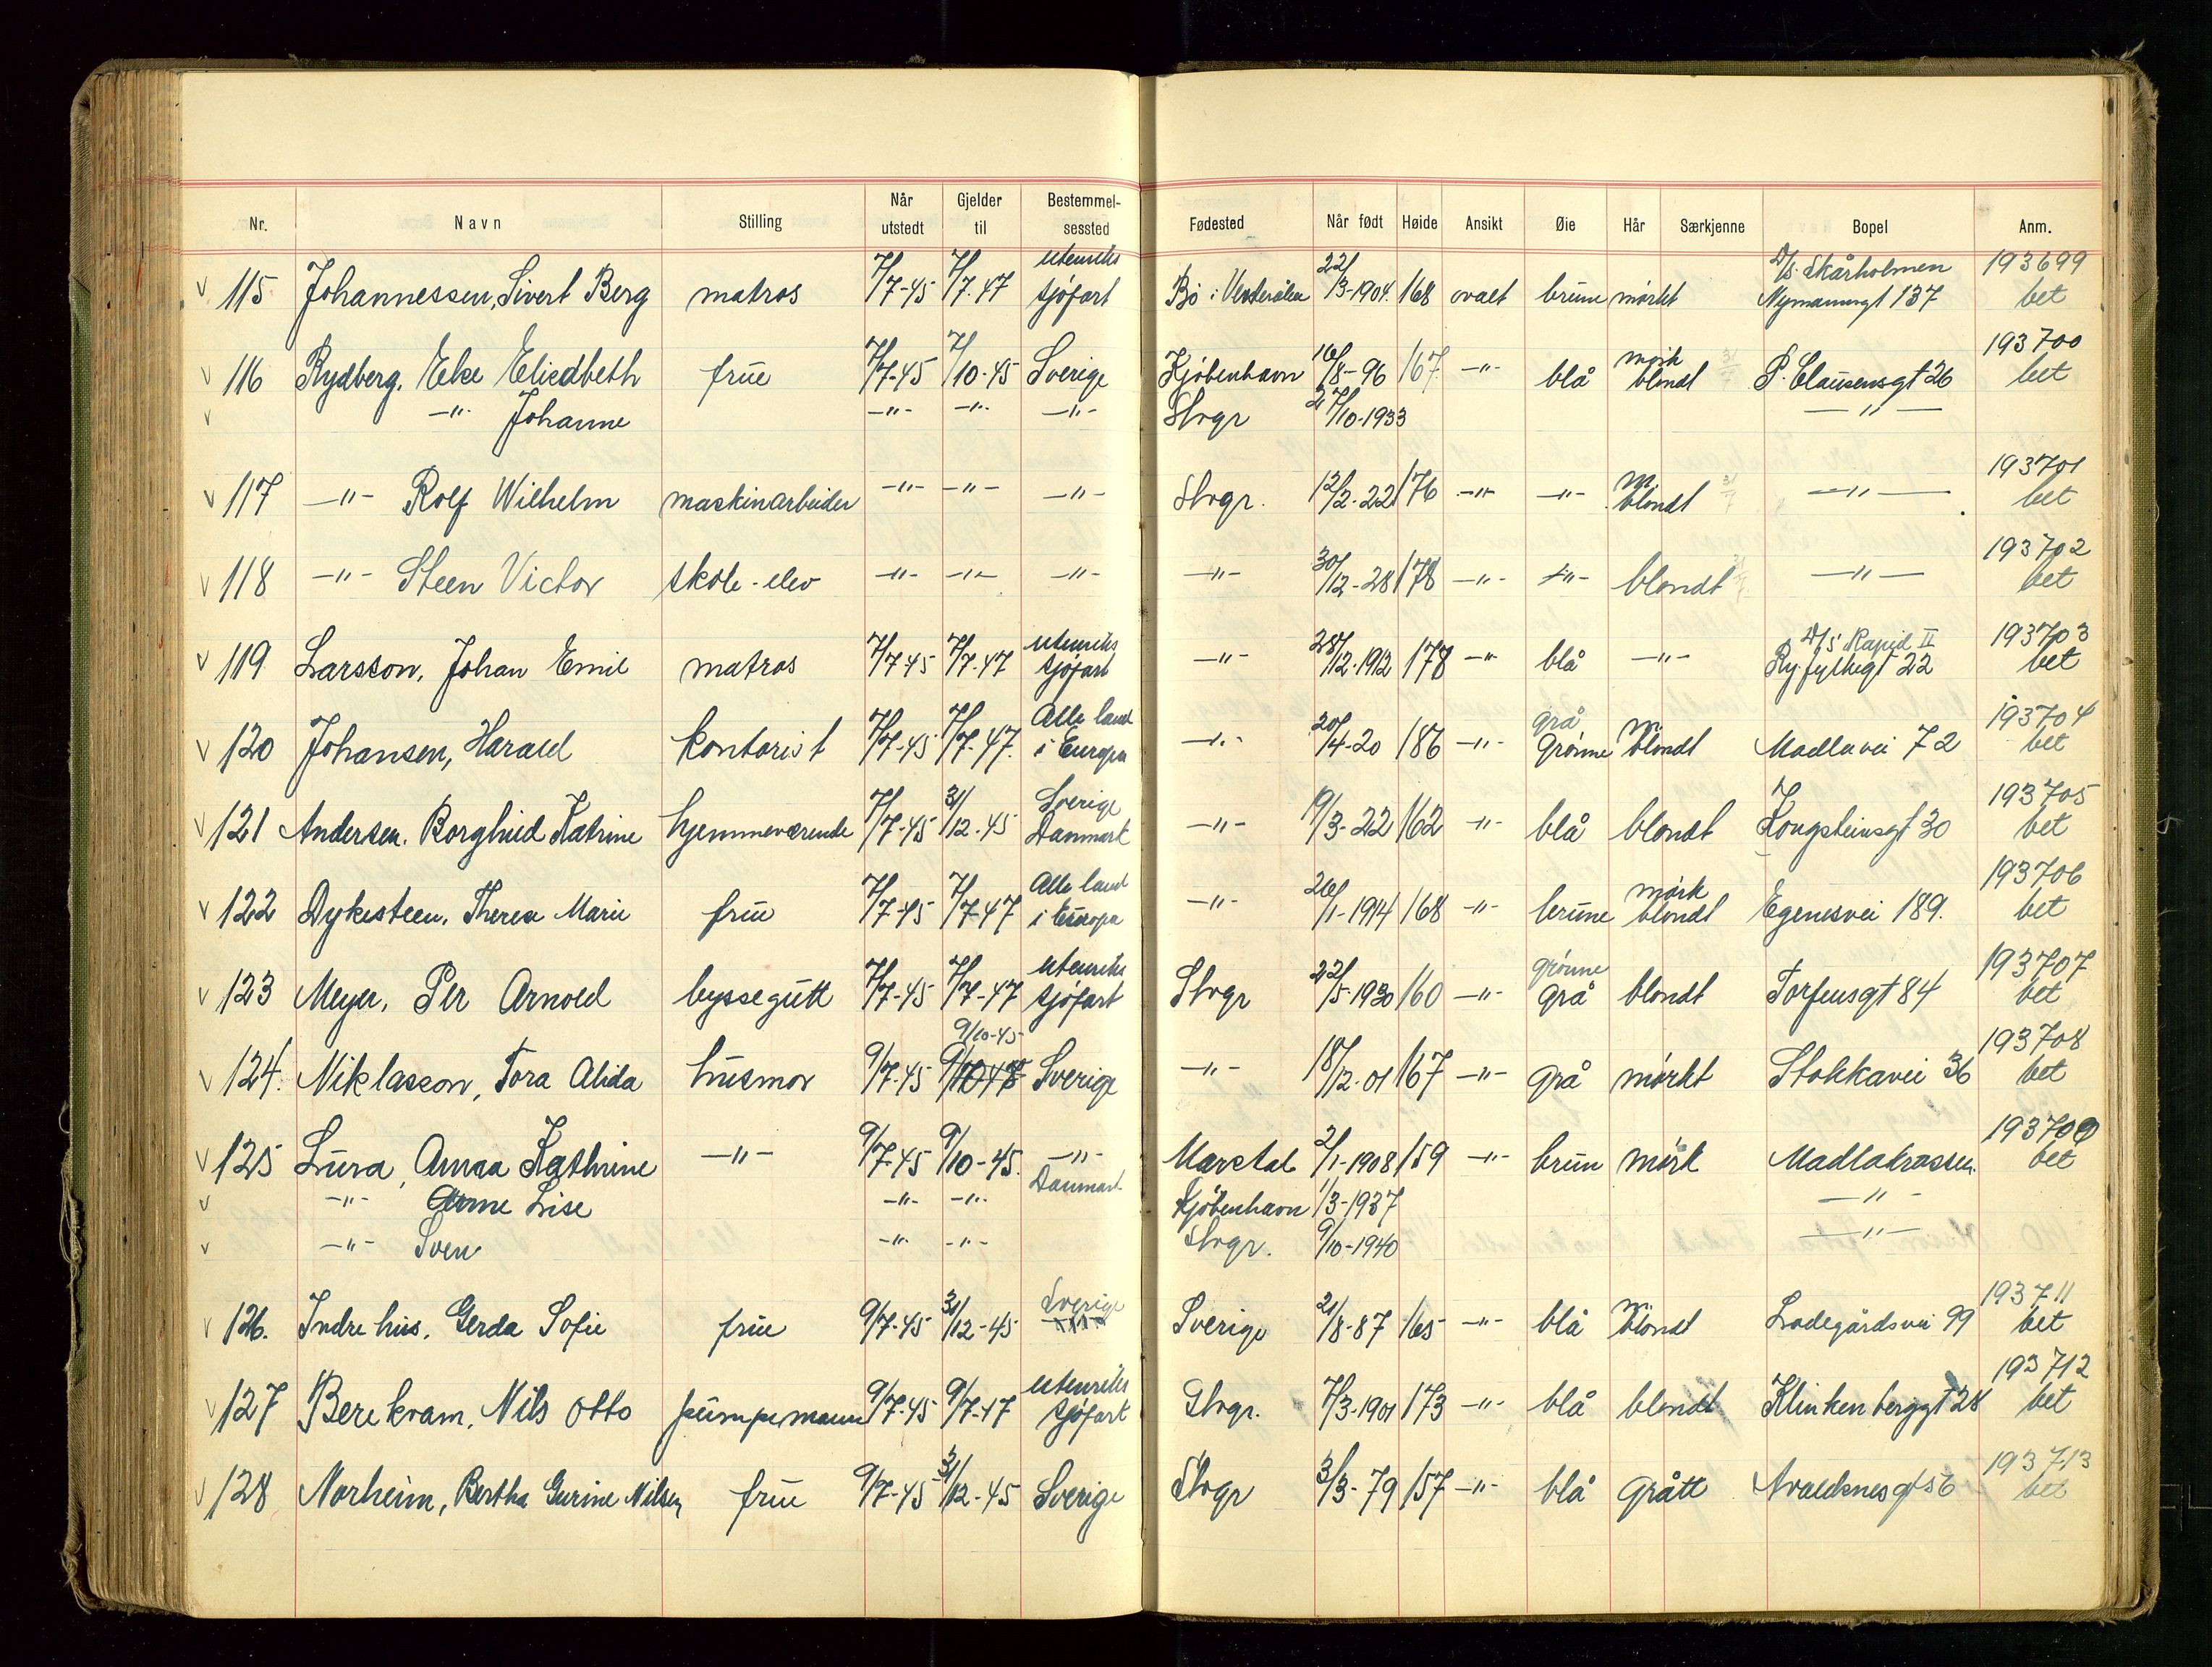 Nr. Navn Stilling Når utstedt Gjelder til Bestemmelsessted Fødested Når født Høide Ansikt Øie Hår Særkjenne Bopel Anm.
utenriks 22/ D/s. Skårholmen 193699
v 115 Johannessen, Sivert Berg matros 7/7-45 7/7-47 sjøfart Bø i Vesterålen 3-1904 168 ovalt brune mørkt Nymannsgt 137 bet
mørk 193700
v 116 Rydberg, Elise Elisabeth frue 7/7-45 7/10-45 Sverige Kjøbenhavn 16/8-96 167 -"- blå blondt P. Clausensgt 26 bet
v -"- Johanne -"- -"- -"- Stvgr 27/10-1933 -"-
m. 193701
v 117 -"- Rolf Wilhelm maskinarbeider -"- -"- -"- Stvgr. 12/2-22 176 -"- -"- blondt -"- bet
193702
v 118 -"- Steen Victor skole-elev -"- -"- -"- -"- 30/12-28 178 -"- -"- blondt -"- bet
utenriks D/s Rapid II 193703
v 119 Larsson, Johan Emil matros 7/7-45 7/7-47 sjøfart -"- 28/12-1912 178 -"- blå -"- Ryfylkegt 22 bet
Alle land grå m. 193704
v 120 Johansen, Harald kontorist 7/7-45 7/7-47. i Europa -"- 20/4-20 186 -"- grønne blondt Madlavei 72 bet
Sverige 193705
v 121 Andersen, Borghild Katrine hjemmeværende 7/7-45 31/12-45 Danmark -"- 19/3-22 162 -"- blå blondt Kongsteinsgt 30 bet
Alle land mørk 193706
v 122 Dykesteen, Theresa Marie frue 7/7-45 7/7-47 i Europa -"- 26/1-1914 168 -"- brune blondt Egenesvei 189. bet
utenriks grønne 193707
v 123 Meyer, Per Arnold byssegutt 7/7-45 7/7-47 sjøfart Stvgr 22/5-1930 160 -"- grå blondt Torfeusgt 84 bet
9/10-45 193708
v 124. Niklasson, Tora Alida husmor 9/7-45 Sverige -"- 18/12-01 167 -"- grå mørkt Stokkavei 36 bet
193709
v 125 Lura, Anna Kathrine -"- 9/7-45 9/10-45. -"- Marstal 2/1-1908 159 -"- brun mørk Madlakrossen. bet
Danmark
v -"- Anne Lise -"- -"- Kjøbenhavn 1/3-1937 -"-
v -"- Sven -"- -"- Stvgr. 9/10-1940 -"-
Sverige m. 193711
v 126. Indrehus, Gerda Sofie frue 9/7-45 31/12-45 Sverige 21/8-87 165 -"- blå blondt Ladegårdsvei 99 bet
utenriks 193712
v 127 Berekvam, Nils Otto pumpemann 9/7-45 9/7-47 sjøfart Stvgr. 7/3-1901 173 -"- blå blondt Klinkenberggt 28 bet
193713
v 128 Norheim, Bertha Gurine Nilsen, frue 9/7-45 31/12-45 Sverige Stvgr 3/3-79 157 -"- blå grått Avaldsnesgt 56 bet